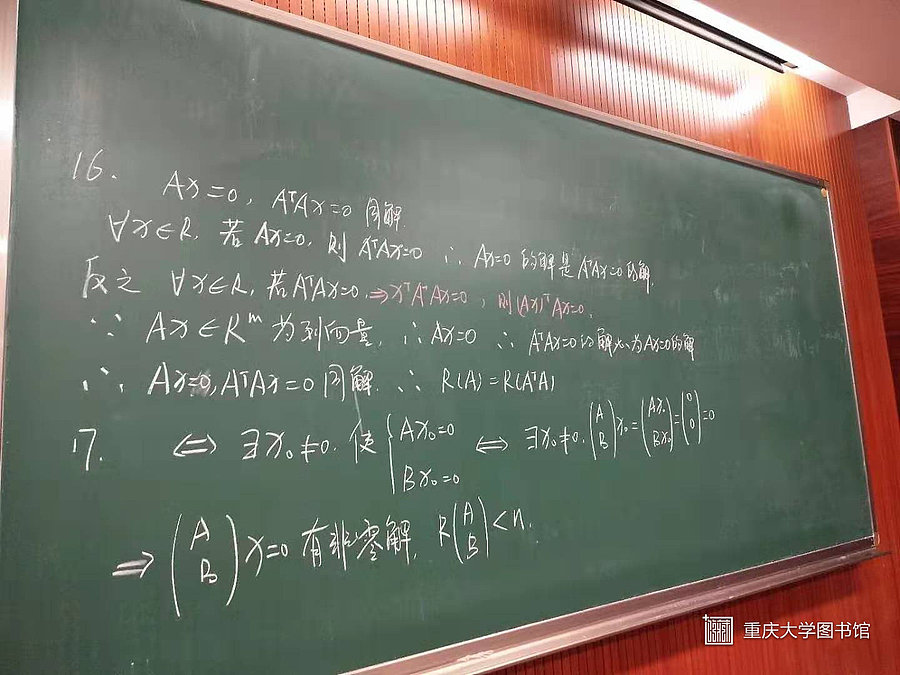 16.
Ax=0, AᵀAx=0 同解.
∀x∈R. 若 Ax=0. 则 AᵀAx=0 ∴ Ax=0 的解是 AᵀAx=0 的解.
反之 ∀x∈R, 若AᵀAx=0, ⇒xᵀAᵀAx=0, 则(Ax)ᵀAx=0.
∵ Ax∈Rᵐ 为列向量, ∴Ax=0 ∴ AᵀAx=0的解必为Ax=0的解
∴ Ax=0, AᵀAx=0 同解. ∴ R(A)=R(AᵀA)
17. ⇔ ∃x₀≠0. 使 { Ax₀=0 Bx₀=0 ⇔ ∃x₀≠0. (A B)x₀=(Ax₀ Bx₀)=(0 0)=0
⇒ (A B)x=0 有非零解. R(A B)<n.
重庆大学图书馆